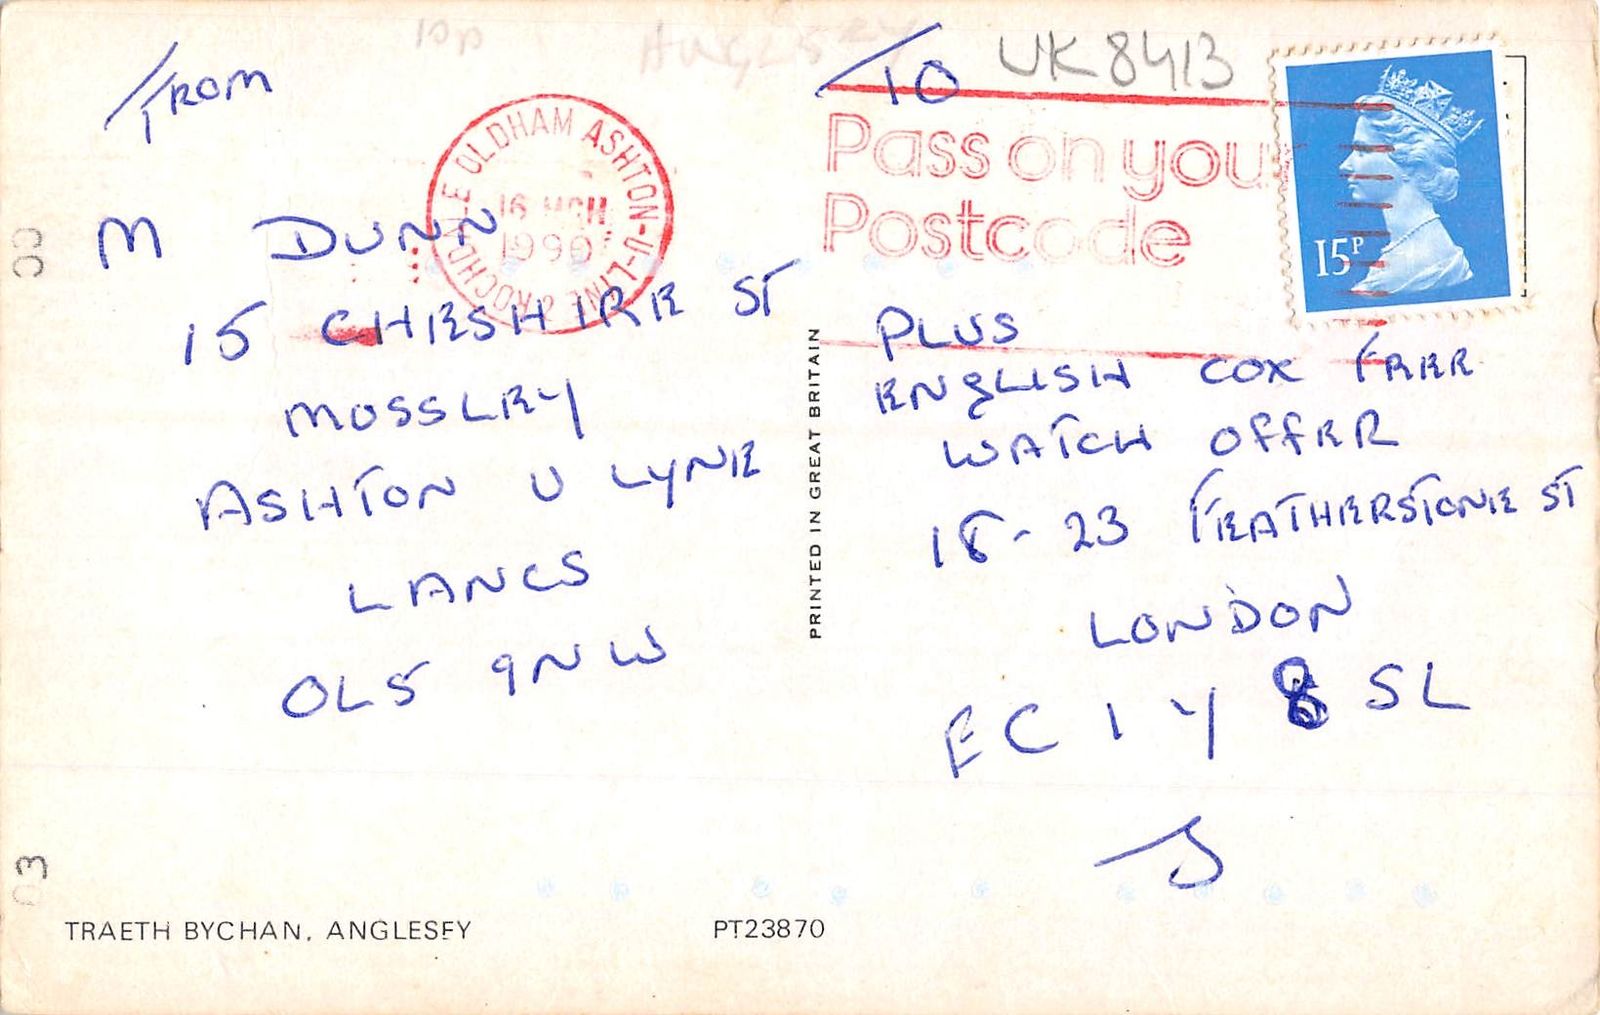 10p
UK 8413
FROM
M DUNN
15 CHESHIRE ST
MOSSLEY
ASHTON U LYNE
LANCS
OL5 9NW
ROCHDALE OLDHAM ASHTON-U-LYNE
16 MCH
1990
TO
Pass on you
Postcode
15P
PLUS
ENGLISH COX FREE
WATCH OFFER
18-23 FEATHERSTONE ST
LONDON
EC1Y 8SL
PRINTED IN GREAT BRITAIN
TRAETH BYCHAN, ANGLESEY
PT23870